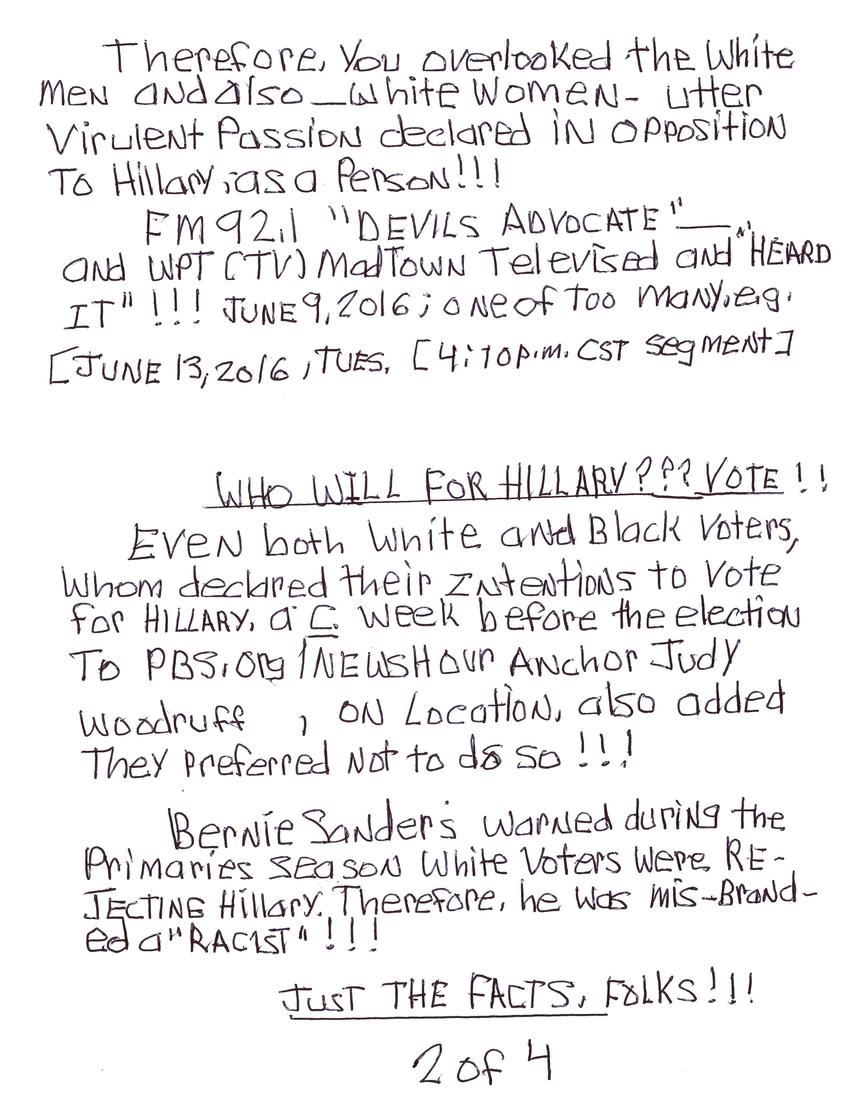 Therefore, You overlooked the White
Men and also __White Women- utter
Virulent Passion declared in opposition
To Hillary, as a Person!!!
FM 92.1 "DEVILS ADVOCATE"__,
and WPT (TV) MadTown Televised and "HEARD
IT"!!! JUNE 9, 2016; one of Too many, e.g.
[JUNE 13, 2016, TUES. [4:10 p.m. CST segment]
WHO WILL FOR HILLARY??? VOTE!!
Even both White and Black Voters,
Whom declared their Intentions to Vote
for HILLARY, a C. Week before the election
To PBS.org/NEWSHOUR Anchor Judy
Woodruff , on Location, also added
They preferred Not to do so!!!
Bernie Sanders warned during the
Primaries season White Voters were RE-
JECTING Hillary. Therefore, he was mis-Brand-
ed a "RACIST"!!!
JUST THE FACTS, FOLKS!!!
2 of 4